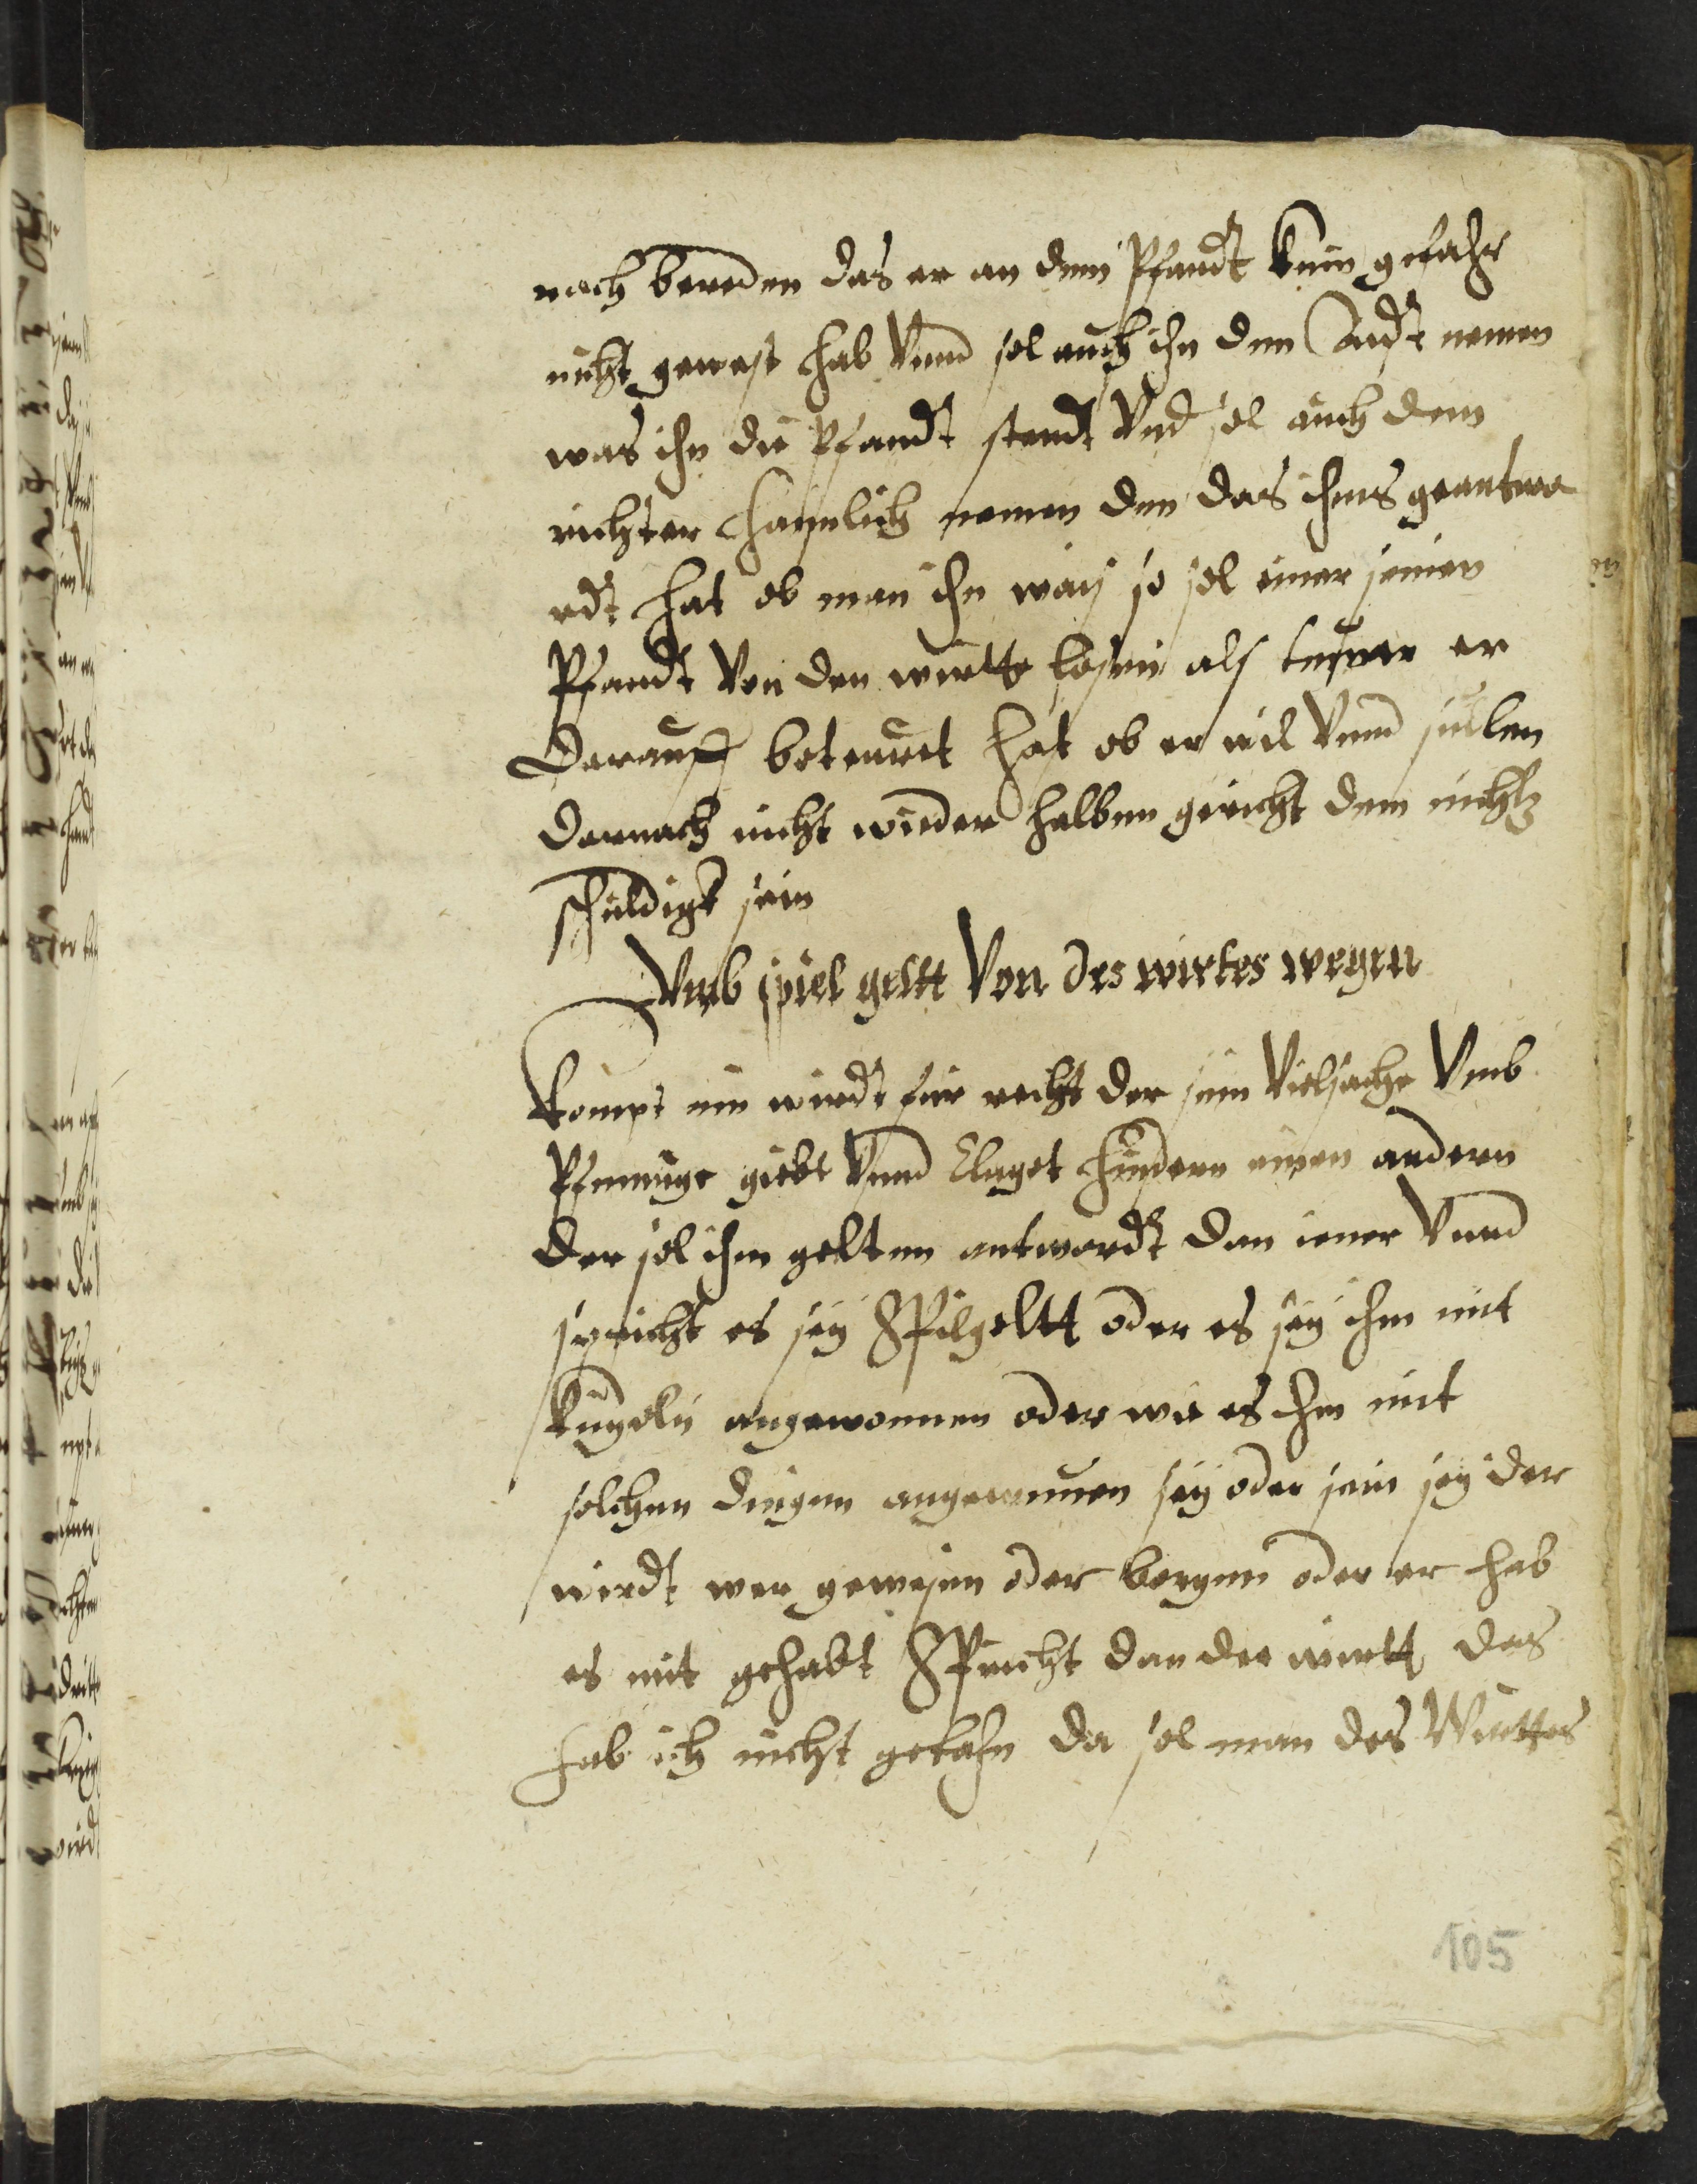 nach bereden das er an dem Pfandt kein gefahr
nicht gewest hab vnnd sol auch ihn den Aidt nemen
was ihn die Pfandt stendt vnd sol auch dem
richter heimlich nemen den das ihms geantwo
rdt hat ob man ihn wais so sol einer seinen
Pfandt von den wirtte losen als teuwer er
darauff beteuret hat ob er wil vnnd sullen
darnach nicht wieder halben gericht dem nichts
schuldigk sein
Vmb spiel geltt Von des wirtes wegen
Kompt ein wirdt für recht der sein vielsache vmb
Pfenninge giebt vnnd klaget hinder einen andern
der sol ihm gelten antwordt dan iener vnnd
spricht es sey Spilgeltt oder es sey ihm mit
kugeln angewonnen oder wie es ihm mit
solchen dingen angewunnen sey oder sein sey der
wirdt wer gewesen oder borgen oder er hab
es mit gehabt Spricht dan der wirtt das
hab ich nicht gethan da sol man des Wirttes
105